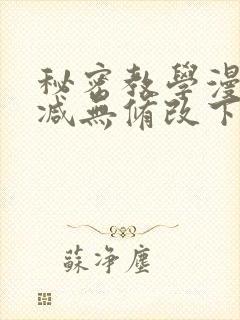 秘密教學漫
減無修改下
蘇淨塵